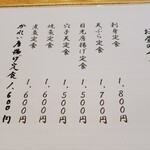 刺身定食 1,800円
天ぷら定食 1,700円
目光唐揚げ定食 1,500円
穴子天定食 1,500円
焼魚定食 1,600円
煮魚定食 1,600円
かれい唐揚げ定食 1,600円